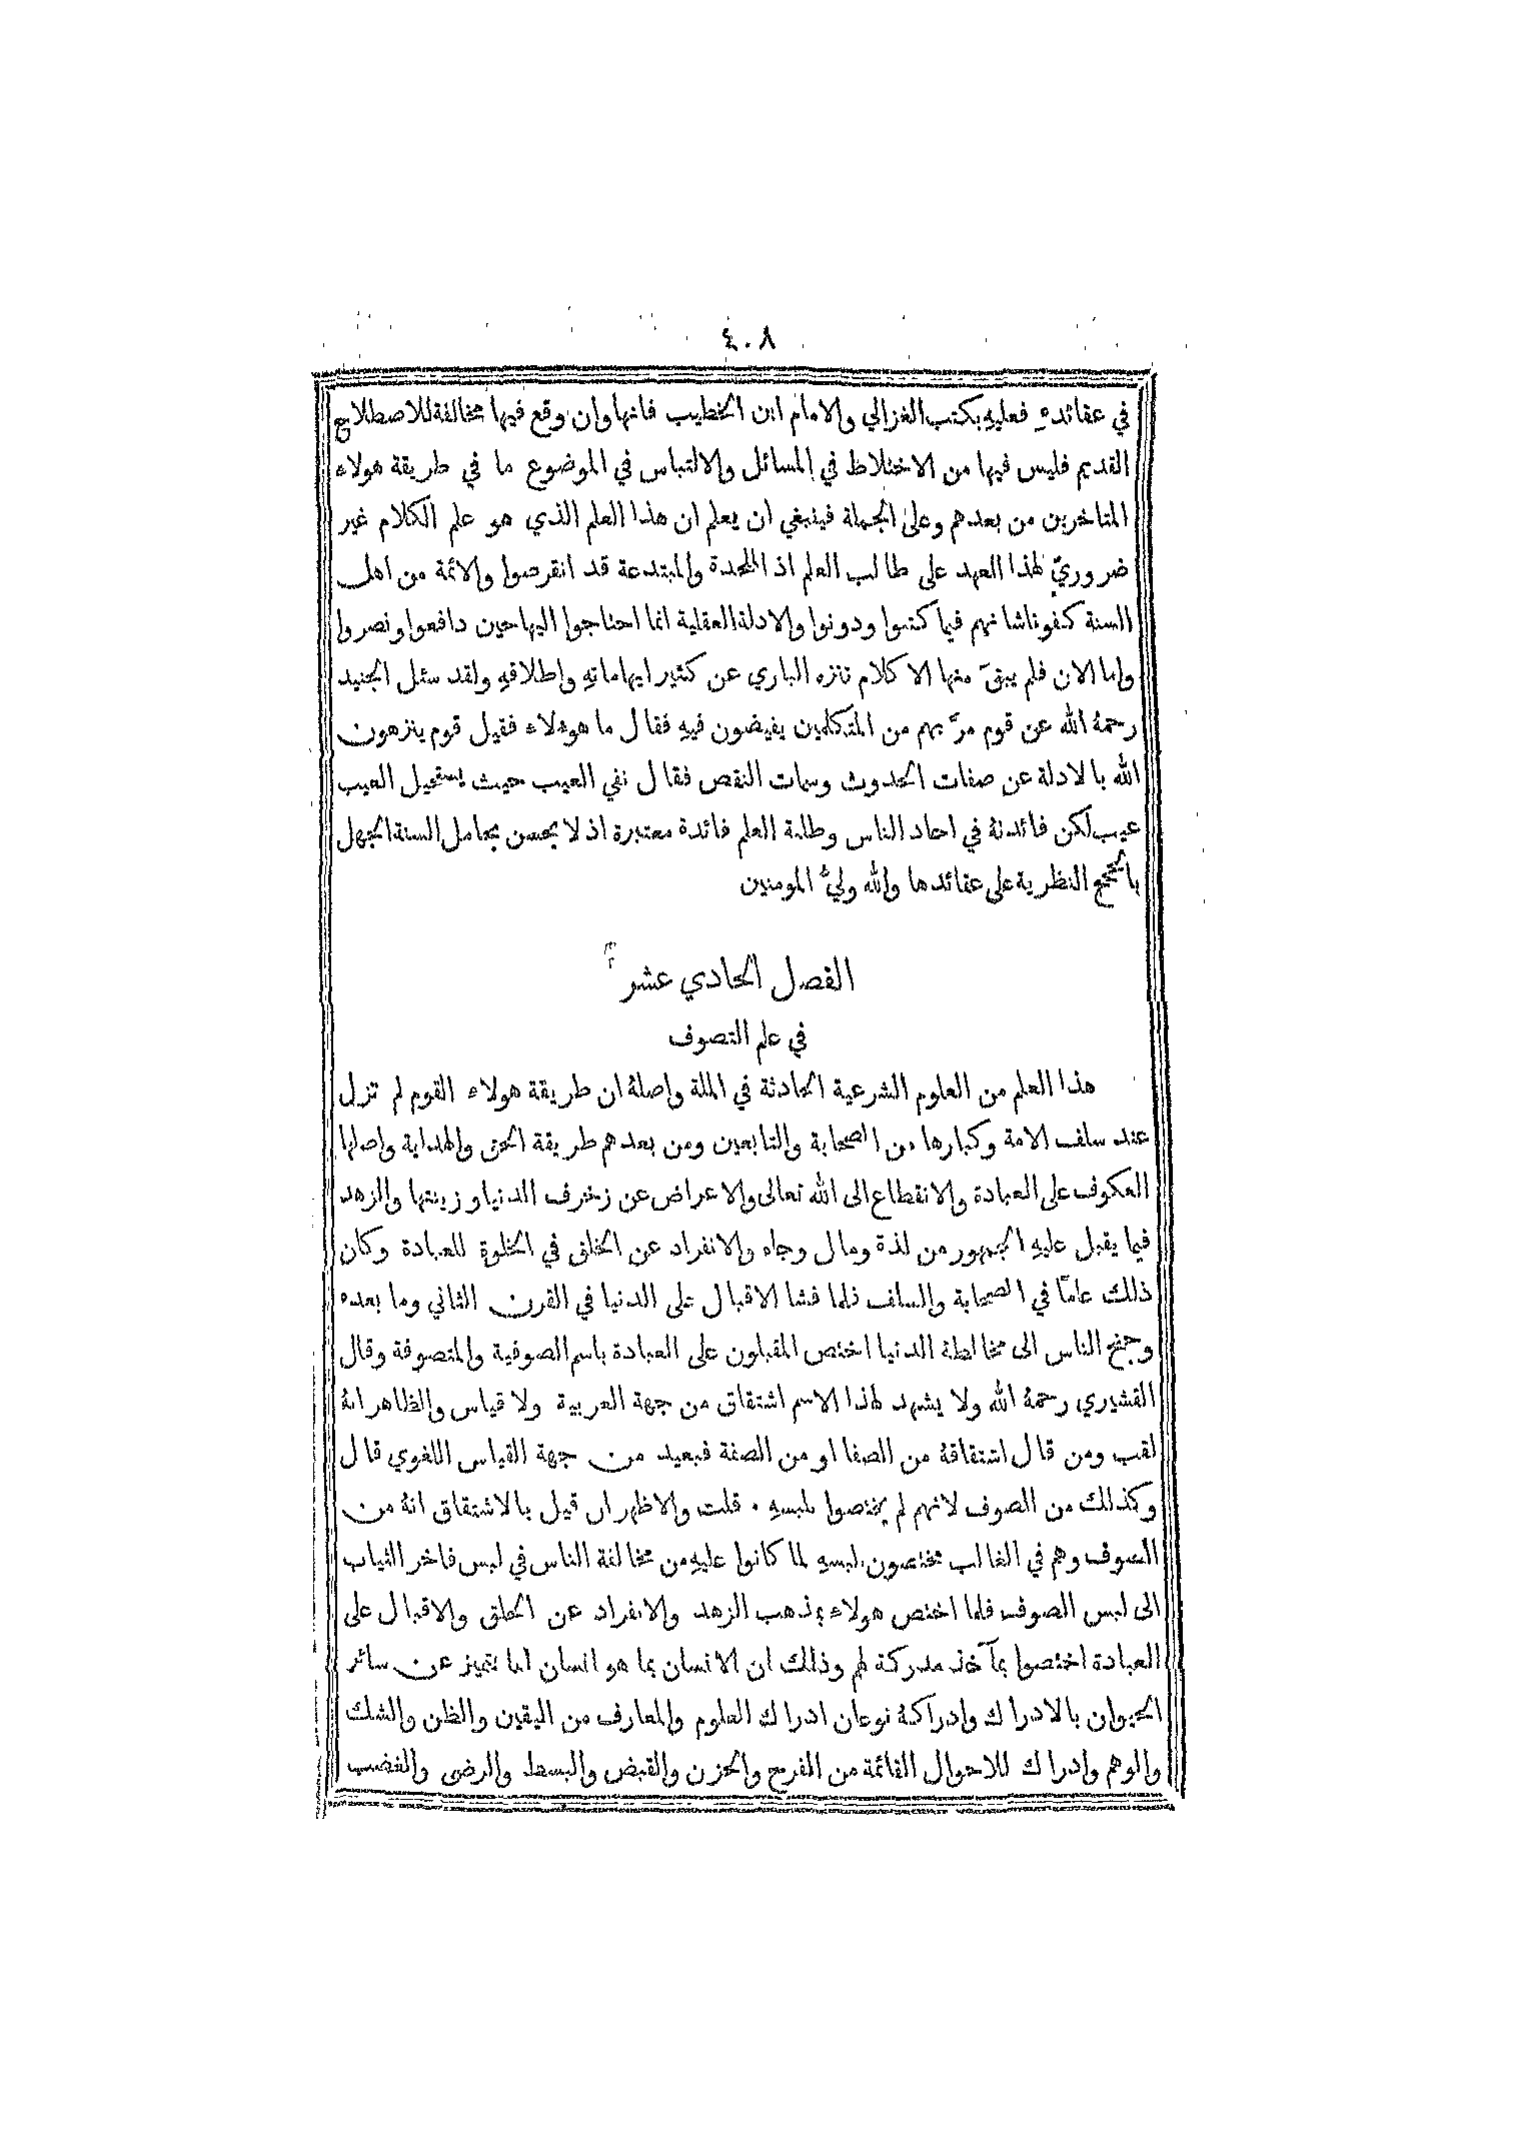 ٤٠٨
في عقائدهِ فعليهِ بكتب الغزالي والامام ابن الخطيب فانها وان وقع فيها مخالفة للاصطلاح
القديم فليس فيها من الاختلاط في المسائل والالتباس في الموضوع ما في طريقة هولاء
المتاخرين من بعدهم وعلى الجملة فينبغي ان يعلم ان هذا العلم الذي هو علم الكلام غير
ضروريّ لهذا العهد على طالب العلم اذ الملحدة والمبتدعة قد انقرضوا والائمة من اهل
السنة كفونا شانهم فيما كتبوا ودونوا والادلة العقلية انما احتاجوا اليها حين دافعوا ونصروا
واما الان فلم يبقَ منها الا كلام تنزه الباري عن كثير ايهاماتهِ واطلاقهِ ولقد سئل الجنيد
رحمهُ الله عن قوم مرَّ بهم من المتكلمين يفيضون فيهِ فقال ما هوءلاء فقيل قوم ينزهون
الله بالادلة عن صفات الحدوث وسمات النقص فقال نفي العيب حيث يستحيل العيب
عيب لكن فائدتهُ في احاد الناس وطلبة العلم فائدة معتبرة اذ لا يحسن بحامل السنة الجهل
بالحجج النظرية على عقائدها والله وليُّ المومنين
الفصل الحادي عشر
في علم التصوف
هذا العلم من العلوم الشرعية الحادثة في الملة واصلهُ ان طريقة هولاء القوم لم تزل
عند سلف الامة وكبارها من الصحابة والتابعين ومن بعدهم طريقة الحق والهداية واصلها
العكوف على العبادة والانقطاع الى الله تعالى والاعراض عن زخرف الدنيا وزينتها والزهد
فيما يقبل عليهِ الجمهور من لذة ومال وجاه والانفراد عن الخلق في الخلوة للعبادة وكان
ذلك عامًا في الصحابة والسلف فلما فشا الاقبال على الدنيا في القرن الثاني وما بعده
وجنح الناس الى مخالطة الدنيا اختص المقبلون على العبادة باسم الصوفية والمتصوفة وقال
القشيري رحمهُ الله ولا يشهد لهذا الاسم اشتقاق من جهة العربية ولا قياس والظاهر انهُ
لقب ومن قال اشتقاقهُ من الصفا او من الصفة فبعيد من جهة القياس اللغوي قال
وكذلك من الصوف لانهم لم يختصوا بلبسهِ . قلت والاظهر ان قيل بالاشتقاق انهُ من
الصوف وهم في الغالب مختصون بلبسهِ لما كانوا عليهِ من مخالفة الناس في لبس فاخر الثياب
الى لبس الصوف فلما اختص هولاء بمذهب الزهد والانفراد عن الخلق والاقبال على
العبادة اختصوا بمآخذ مدركة لهم وذلك ان الانسان بما هو انسان انما يتميز عن سائر
الحيوان بالادراك وادراكهُ نوعان ادراك العلوم والمعارف من اليقين والظن والشك
والوهم وادراك للاحوال القائمة من الفرح والحزن والقبض والبسط والرضى والغضب